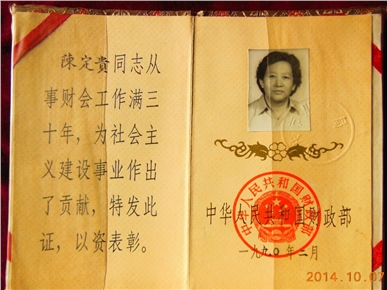 陳定貴同志从
事财会工作满三
十年，为社会主
义建设事业作出
了贡献，特发此
证，以资表彰。
中华人民共和国财政部
中华人民共和国财政部
一九九〇年二月
2014.10.07